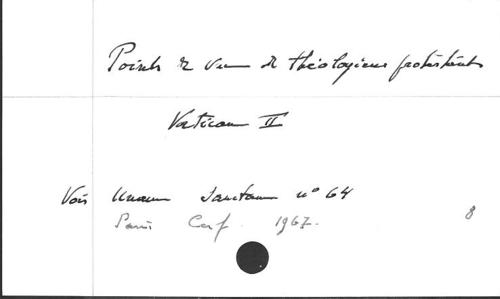 Points de vue de théologiens protestants
Vatican II
Voir Unam Sanctam n° 64
Paris Cerf. 1967.
8